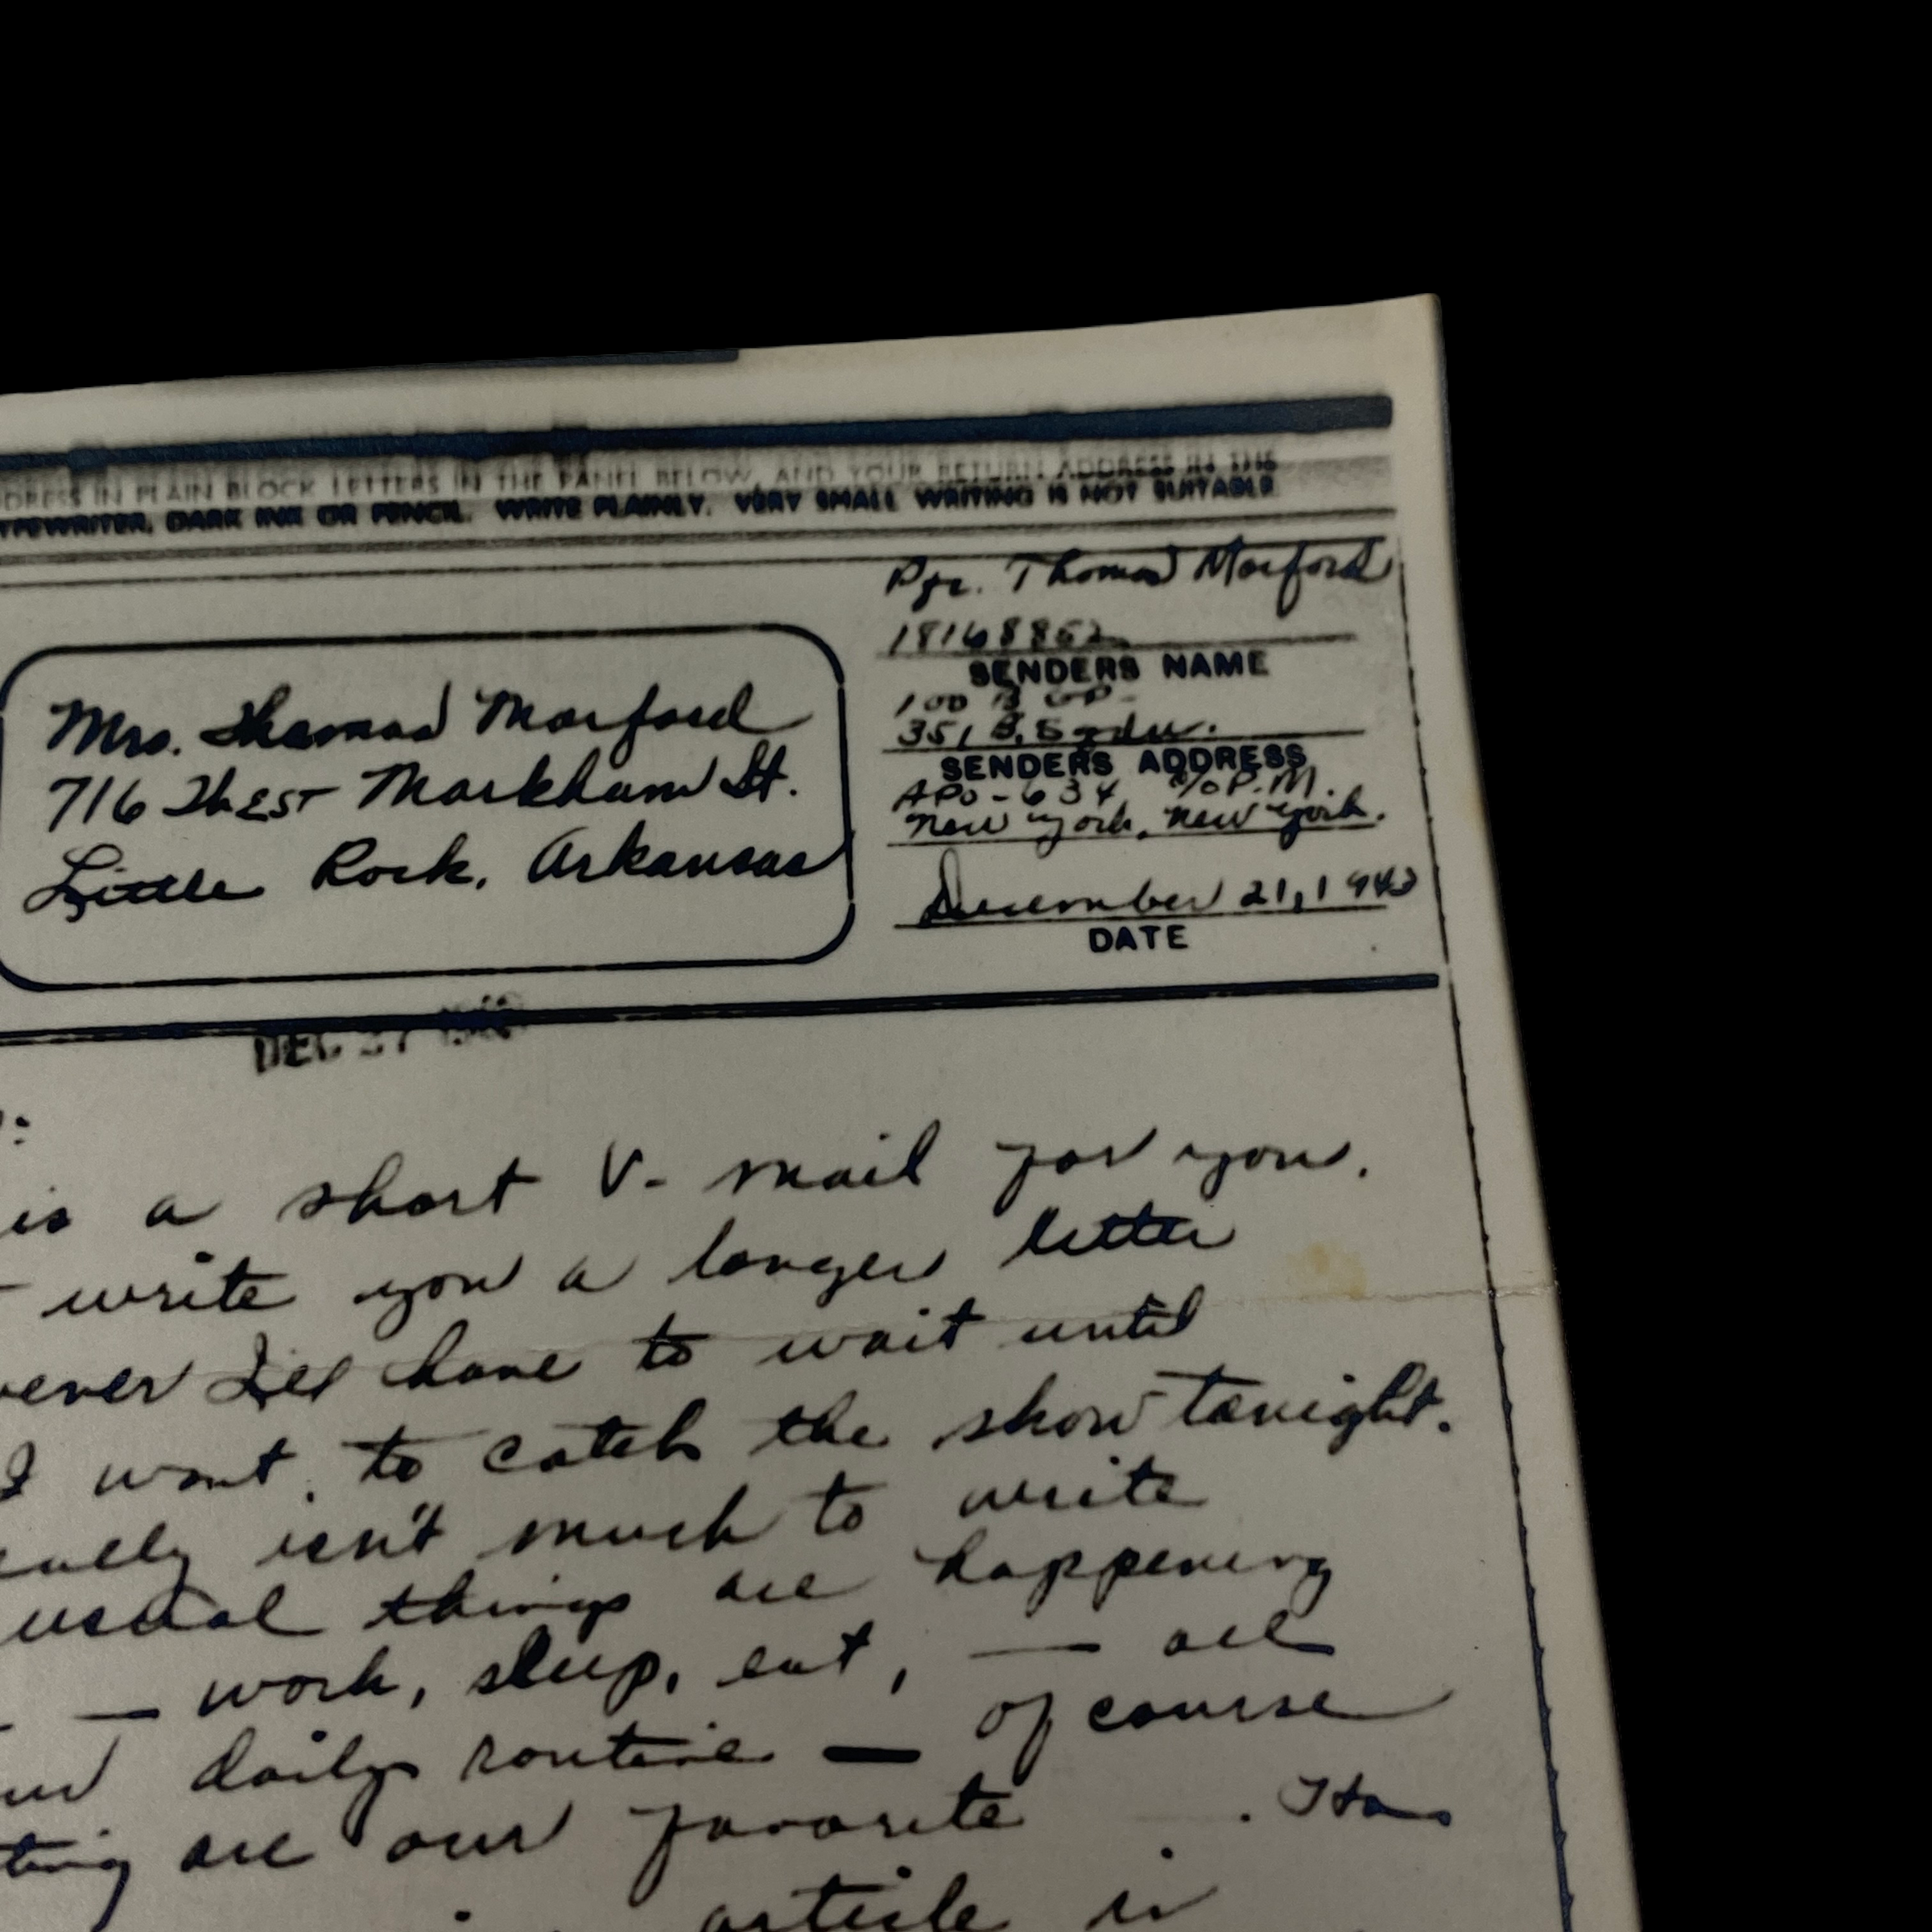 DRESS IN PLAIN BLOCK LETTERS IN THE PANEL BELOW, AND YOUR RETURN ADDRESS IN THE
TYPEWRITER, DARK INK OR PENCIL. WRITE PLAINLY. VERY SMALL WRITING IS NOT SUITABLE.
Mrs. Thomas Morford
716 West Markham St.
Little Rock, Arkansas
Pfc. Thomas Morford
18168852
SENDERS NAME
100 B GP-
351 B. Sqdn.
SENDERS ADDRESS
APO-634 % P.M.
New York, New York.
December 21, 1943
DATE
DEC 27
is a short V-mail for you.
write you a longer letter
ever I'll have to wait until
I want to catch the show tonight.
isn't much to write
usual things are happening
— work, sleep, eat, — all
daily routine — of course
ting are our favorite
article is